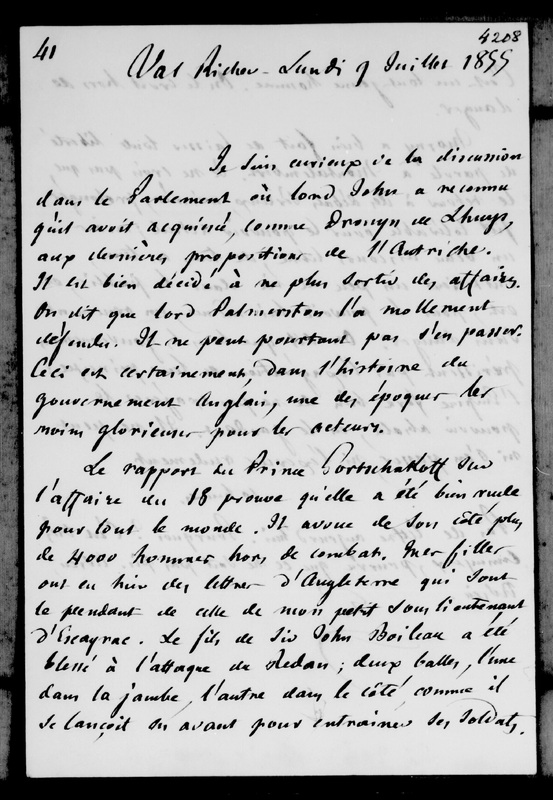 41
4208
Val Richer - Lundi 9 Juillet 1855
Je suis curieux de la discussion
dans le Parlement où lord John a reconnu
qu'il avoit acquiescé, comme Drouyn de Lhuys,
aux dernières propositions de l'Autriche.
Il est bien décidé à ne plus sortir des affaires.
On dit que lord Palmerston l'a mollement
défendu. Il ne peut pourtant pas s'en passer.
Ceci est certainement, dans l'histoire du
gouvernement Anglais, une des époques les
moins glorieuses pour les acteurs.
Le rapport du Prince Gortschakoff sur
l'affaire du 18 prouve qu'elle a été bien rude
pour tout le monde. Il avoue de son côté plus
de 4000 hommes hors de combat. Mes filles
ont eu hier des lettres d'Angleterre qui sont
le pendant de celle de mon petit sous lieutenant
d'Escayrac. Le fils de Sir John Boileau a été
blessé à l'attaque du Redan ; deux balles, l'une
dans la jambe, l'autre dans le côté, comme il
se lançoit en avant pour entrainer ses soldats.